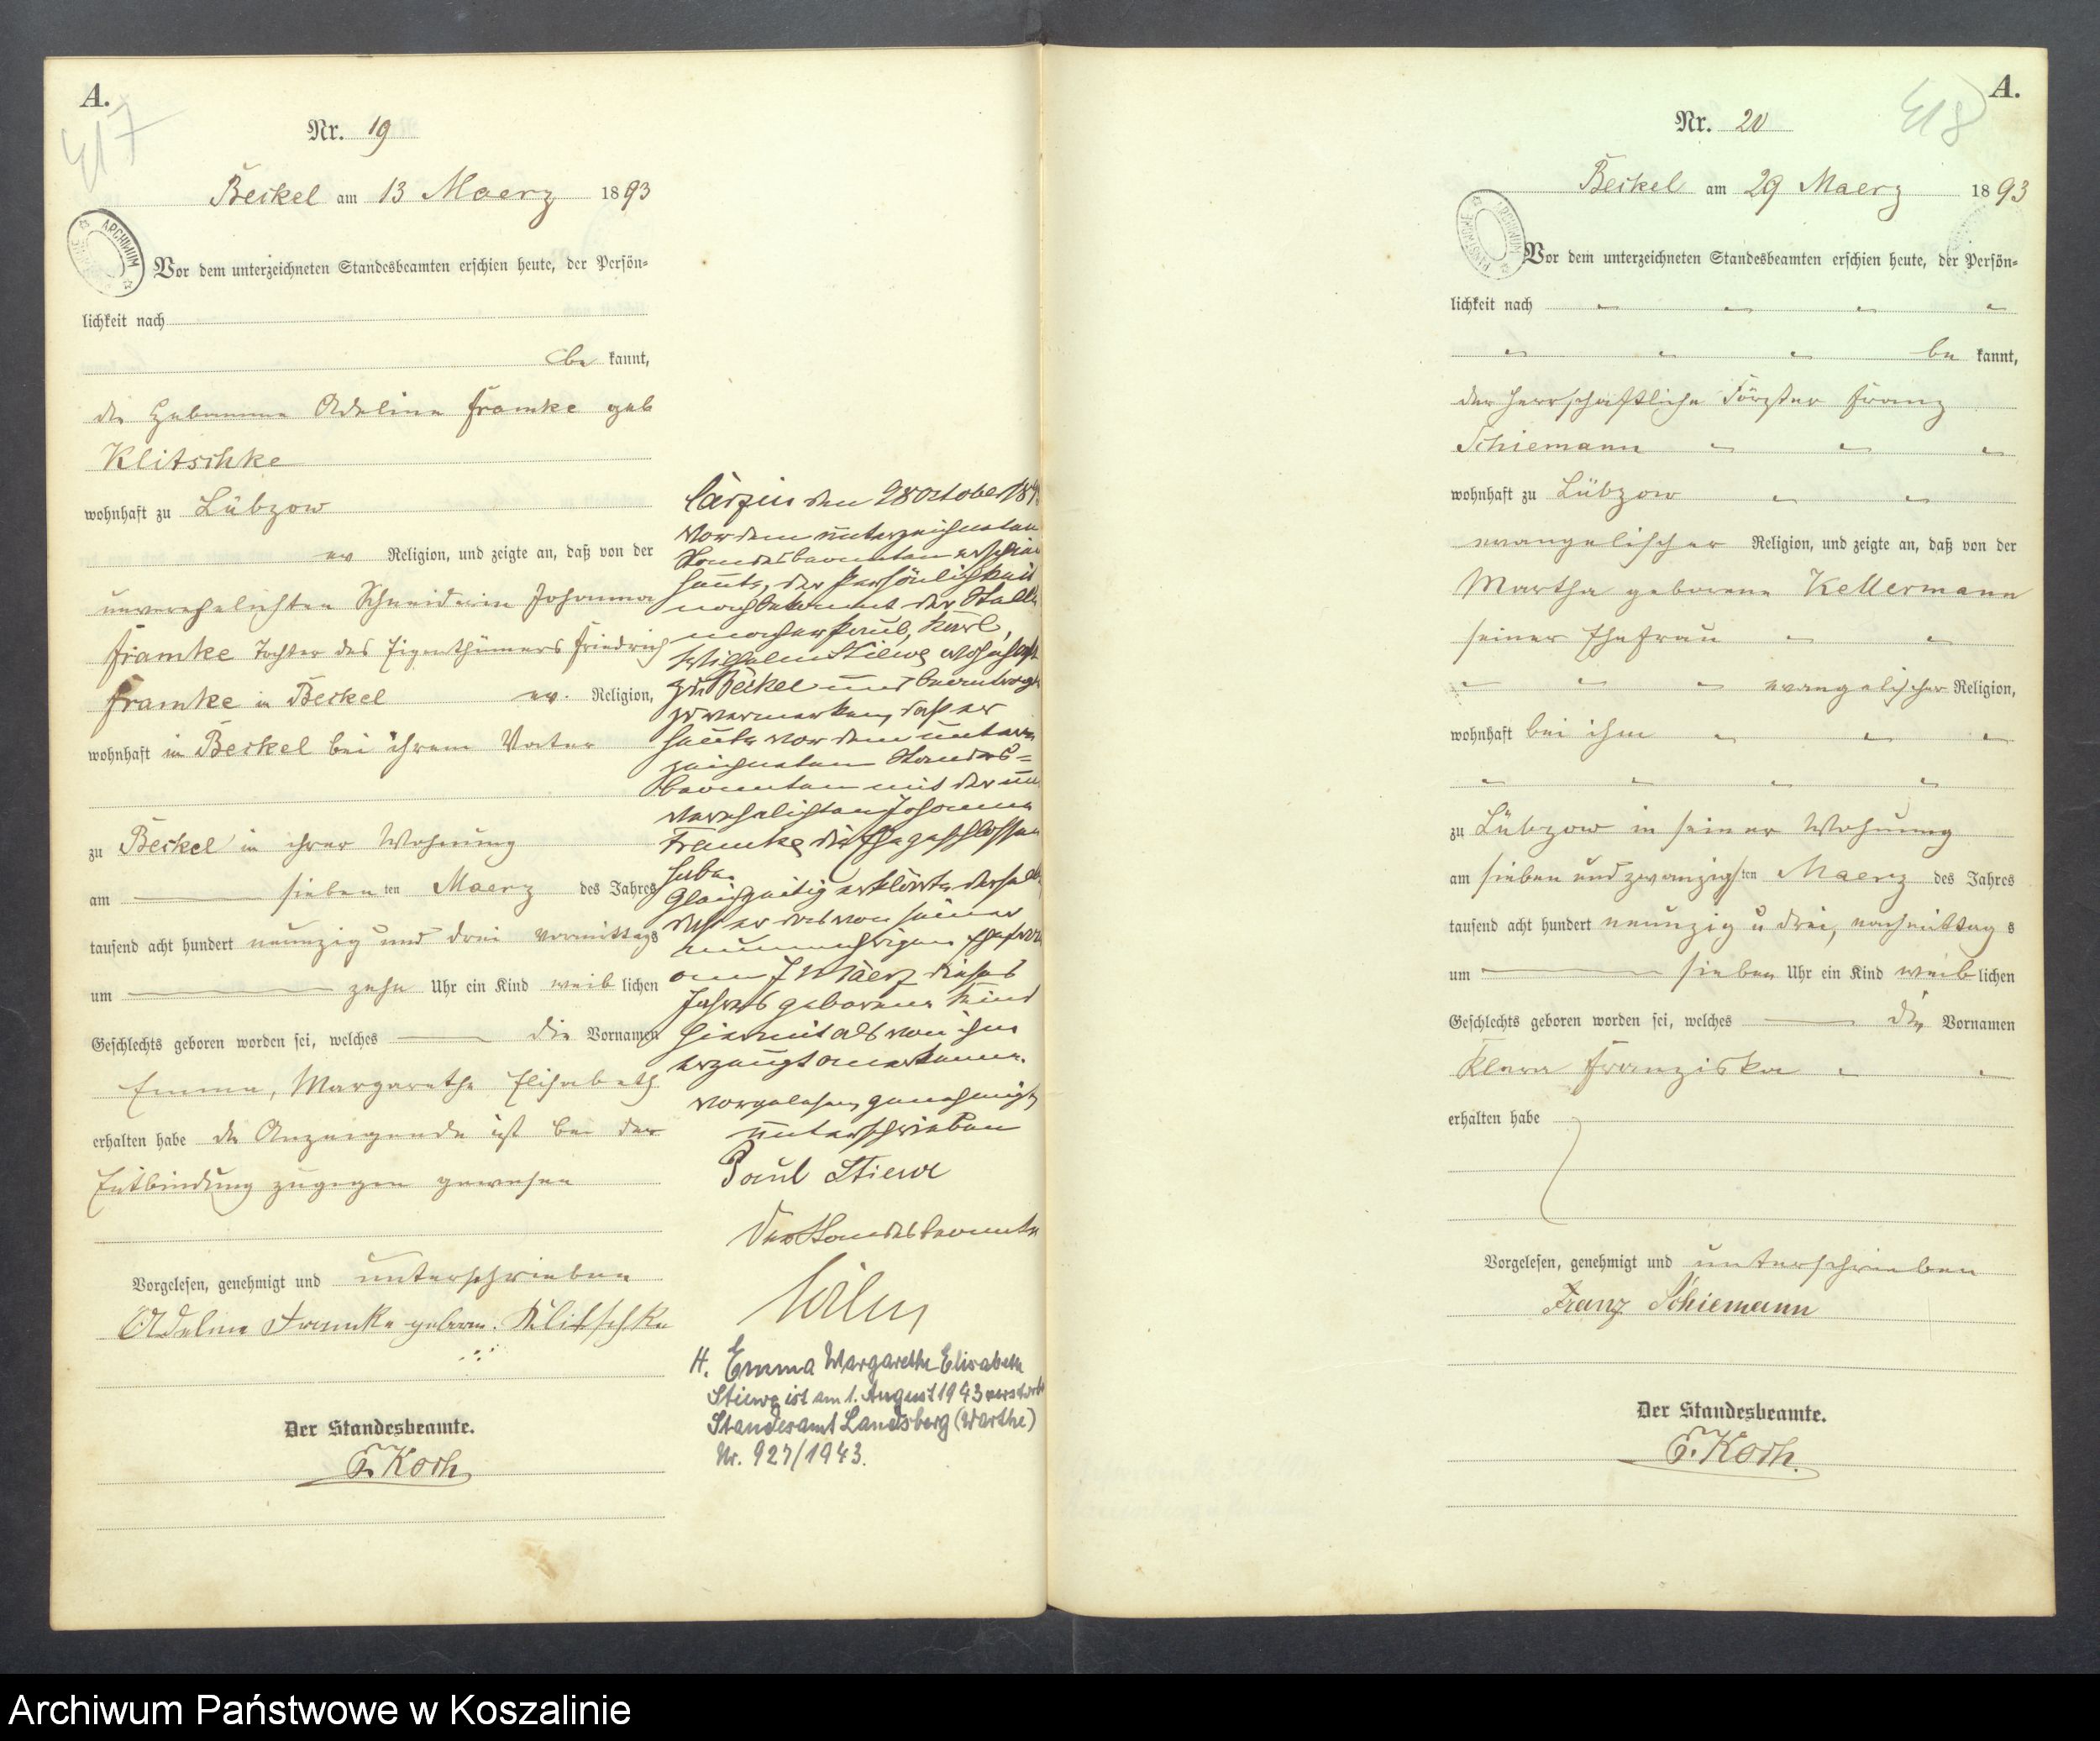 A.
417
Nr. 19
Beckel am 13 Maerz 1893
ARCHIWUM
Vor dem unterzeichneten Standesbeamten erschien heute, der Persön-
lichkeit nach
be kannt,
die Hebamme Adeline Framke geb
Klitschke
wohnhaft zu Lübzow
ev Religion, und zeigte an, daß von der
unverehelichten Schneiderin Johanna
Framke Tochter des Eigenthümers Friedrich
Framke in Beckel ev. Religion,
wohnhaft in Beckel bei ihrem Vater
zu Beckel in ihrer Wohnung
am sieben ten Maerz des Jahres
tausend acht hundert neunzig und drei vormittags
um zehn Uhr ein Kind weib lichen
Geschlechts geboren worden sei, welches die Vornamen
Emma, Margarethe Elisabeth
erhalten habe die Anzeigende ist bei der
Entbindung zugegen gewesen
Vorgelesen, genehmigt und unterschrieben
Adeline Framke geboren. Klitschke
Der Standesbeamte.
F. Koch
den 28 October 189
Vor dem unterzeichneten
Standesbeamten erschien
heute, der Persönlichkeit
nach bekannt der Stell
macher Paul, Karl,
Wilhelm Stiewe wohnhaft
zu Beckel und beantragt
zu vermerken, daß er
heute vor dem unter
zeichneten Standes=
beamten mit der un
verehelichten Johanna
Framke die Ehe geschlossen
habe.
Gleichzeitig erklärte derselbe
daß er das von seiner
nunmehrigen Ehefrau
am 7 Maerz dieses
Jahres geborene Kind
hiermit als von ihm
erzeugt anerkenne.
Vorgelesen, genehmigt,
unterschrieben
Paul Stiewe
Der Standesbeamte
H. Emma Margarethe Elisabeth
Stiewe ist am 1. August 1943 verstorb
Standesamt Landsberg (Warthe)
Nr. 927/1943.
A.
418
Nr. 20
Beckel am 29 Maerz 1893
ARCHIWUM
Vor dem unterzeichneten Standesbeamten erschien heute, der Persön-
lichkeit nach
be kannt,
der herrschaftliche Förster Franz
Schiemann
wohnhaft zu Lübzow
evangelischer Religion, und zeigte an, daß von der
Martha geborene Kellermann
seiner Ehefrau
evangelischer Religion,
wohnhaft bei ihm
zu Lübzow in seiner Wohnung
am sieben und zwanzigsten Maerz des Jahres
tausend acht hundert neunzig u drei, nachmittag s
um sieben Uhr ein Kind weib lichen
Geschlechts geboren worden sei, welches die Vornamen
Klara Franziska
erhalten habe
Vorgelesen, genehmigt und unterschrieben
Franz Schiemann
Der Standesbeamte.
F. Koch.
Archiwum Państwowe w Koszalinie